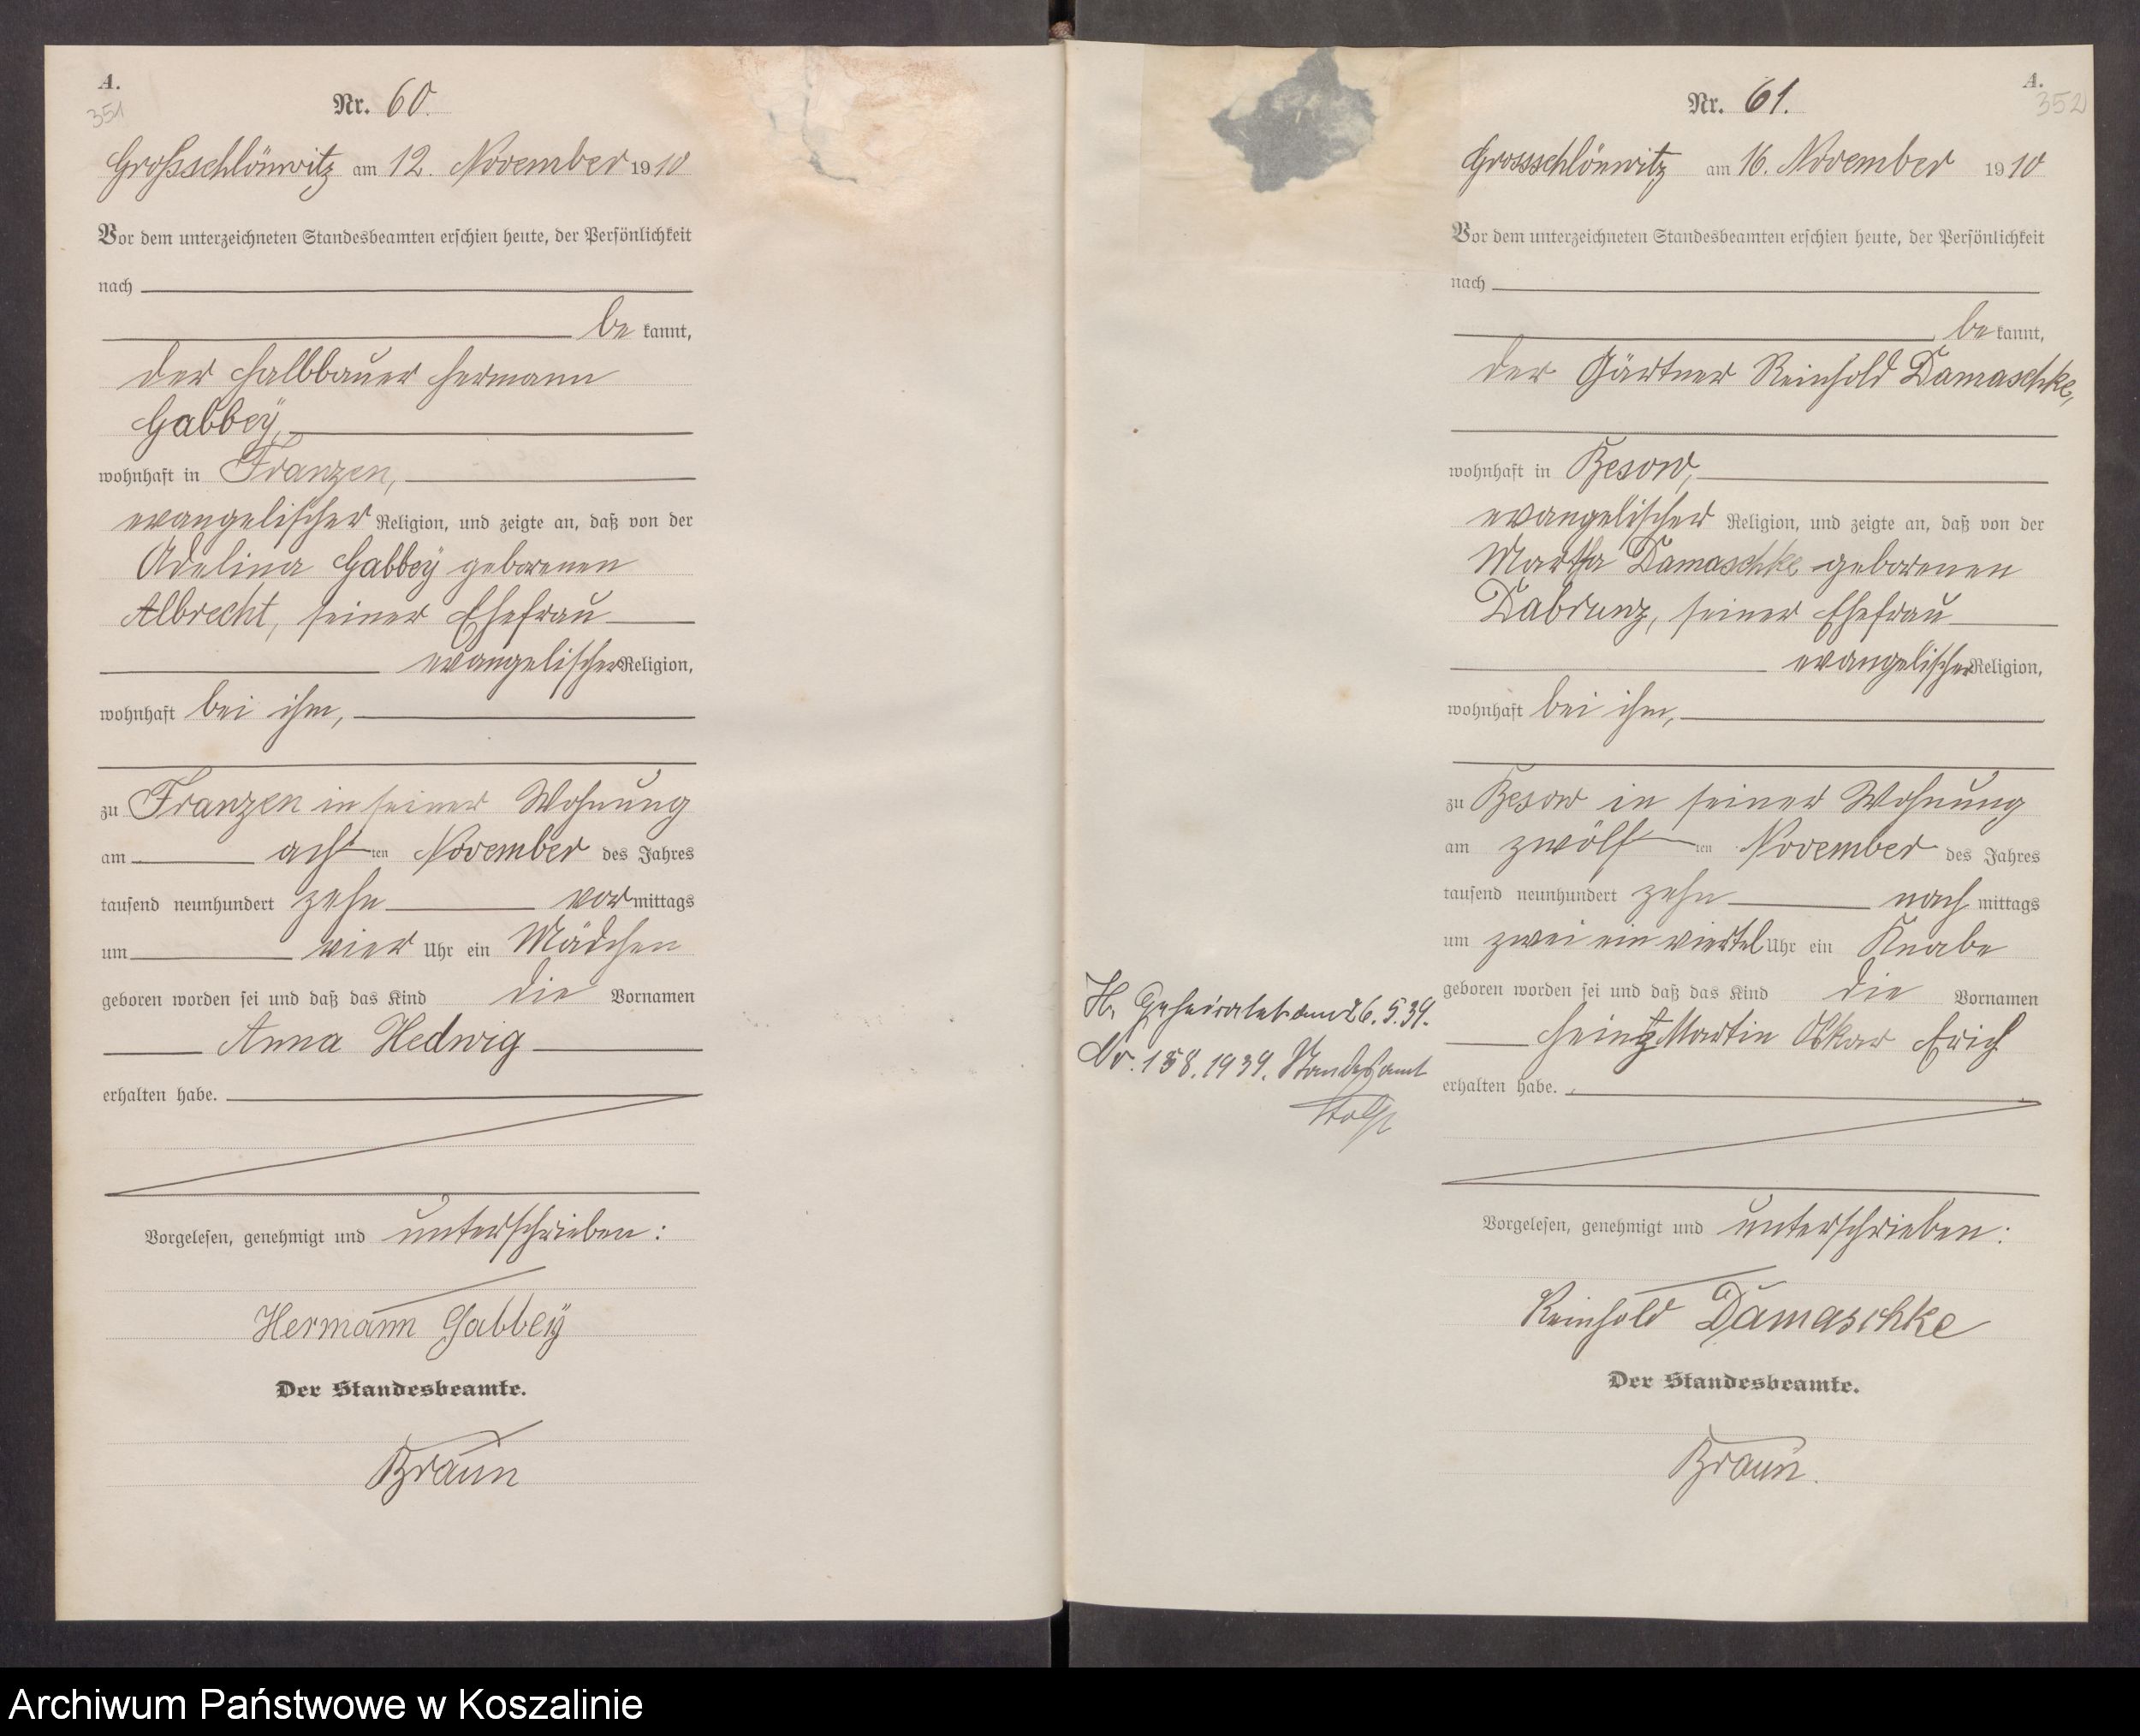 A.
351
Nr. 60.
Großschlönwitz am 12. November 1910
Vor dem unterzeichneten Standesbeamten erschien heute, der Persönlichkeit
nach
be kannt,
der Halbbauer Hermann
Gabbey,
wohnhaft in Franzen,
evangelischer Religion, und zeigte an, daß von der
Adelina Gabbey geborenen
Albrecht, seiner Ehefrau
evangelischer Religion,
wohnhaft bei ihm,
zu Franzen in seiner Wohnung
am acht ten November des Jahres
tausend neunhundert zehn vor mittags
um vier Uhr ein Mädchen
geboren worden sei und daß das Kind die Vornamen
Anna Hedwig
erhalten habe.
Vorgelesen, genehmigt und unterschrieben:
Hermann Gabbey
Der Standesbeamte.
Braun
A.
352
Nr. 61.
Grossschlönwitz am 16. November 1910
Vor dem unterzeichneten Standesbeamten erschien heute, der Persönlichkeit
nach
be kannt,
der Gärtner Reinhold Damaschke,
wohnhaft in Besow,
evangelischer Religion, und zeigte an, daß von der
Martha Damaschke geborenen
Dabrunz, seiner Ehefrau
evangelischer Religion,
wohnhaft bei ihm,
zu Besow in seiner Wohnung
am zwölf ten November des Jahres
tausend neunhundert zehn nach mittags
um zwei ein viertel Uhr ein Knabe
geboren worden sei und daß das Kind die Vornamen
Heintz Martin Oskar Erich
erhalten habe.
H. Geheiratet am 26.5.39.
Nr. 188.1939. Standesamt
Stolp
Vorgelesen, genehmigt und unterschrieben:
Reinhold Damaschke
Der Standesbeamte.
Braun.
Archiwum Państwowe w Koszalinie